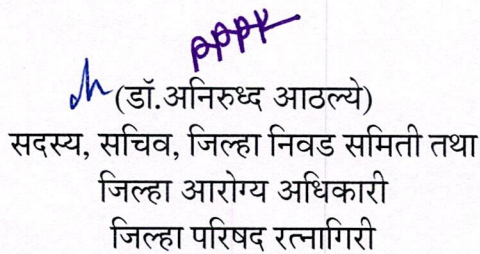 (डॉ.अनिरुध्द आठल्ये)
सदस्य, सचिव, जिल्हा निवड समिती तथा
जिल्हा आरोग्य अधिकारी
जिल्हा परिषद रत्नागिरी